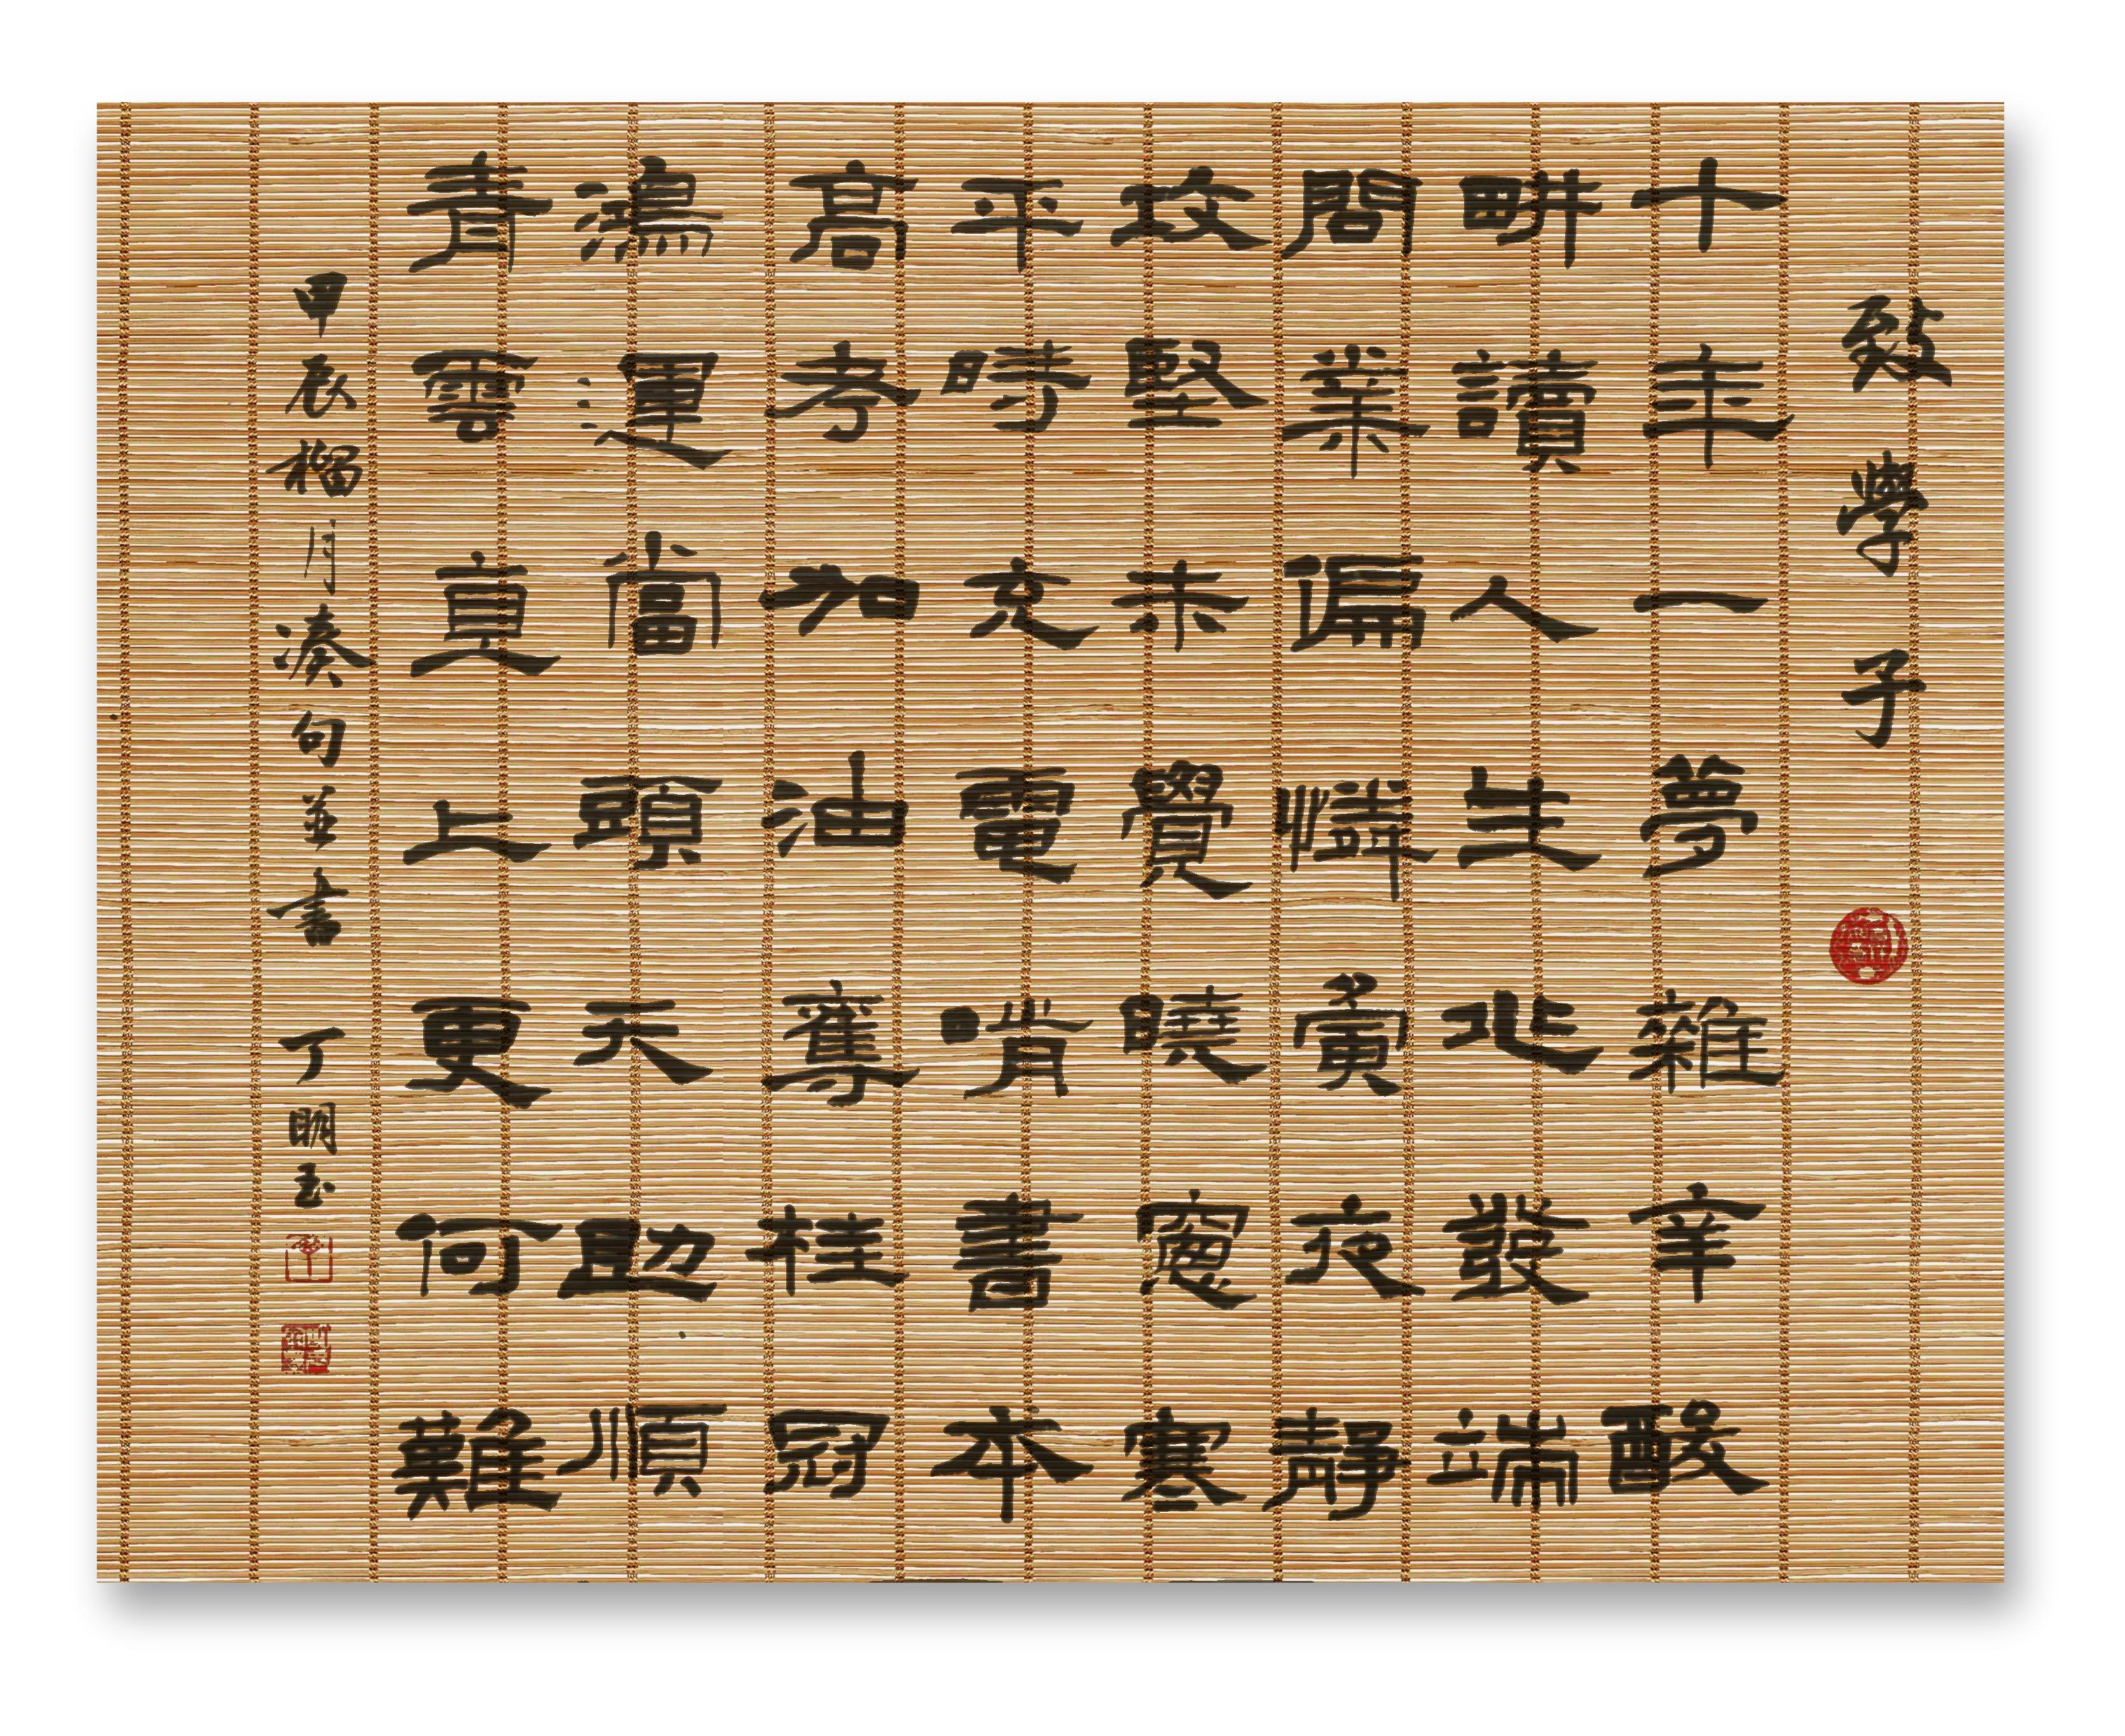 致學子
十年一夢雜辛酸
畊讀人生此發端
問業偏憐夤夜靜
攻堅未覺曉窻寒
平時充電啃書本
高考加油奪桂冠
鴻運當頭天助順
青雲直上更何難
甲辰榴月凑句並書 丁明玉